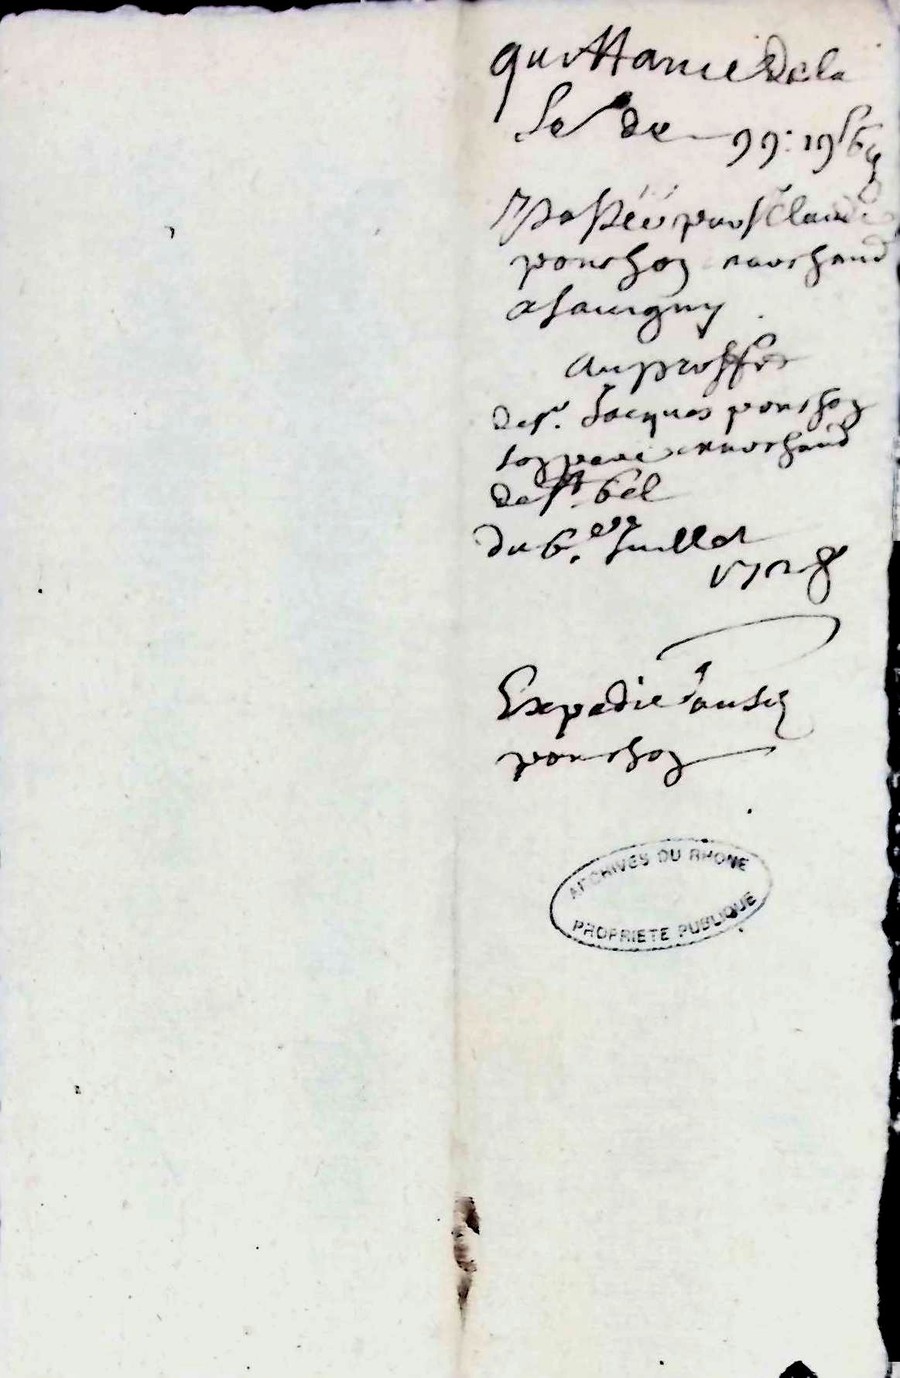 quittance de la
se de 99: 19s 6d
passéé par sr Claude
ponchon marchand
a Savigny
au proffit
de sr. Jacques ponchon
son pere marchand
de st bel
du 6.eme juillet
1728
Expedie aud sr
ponchon
ARCHIVES DU RHONE
PROPRIETE PUBLIQUE